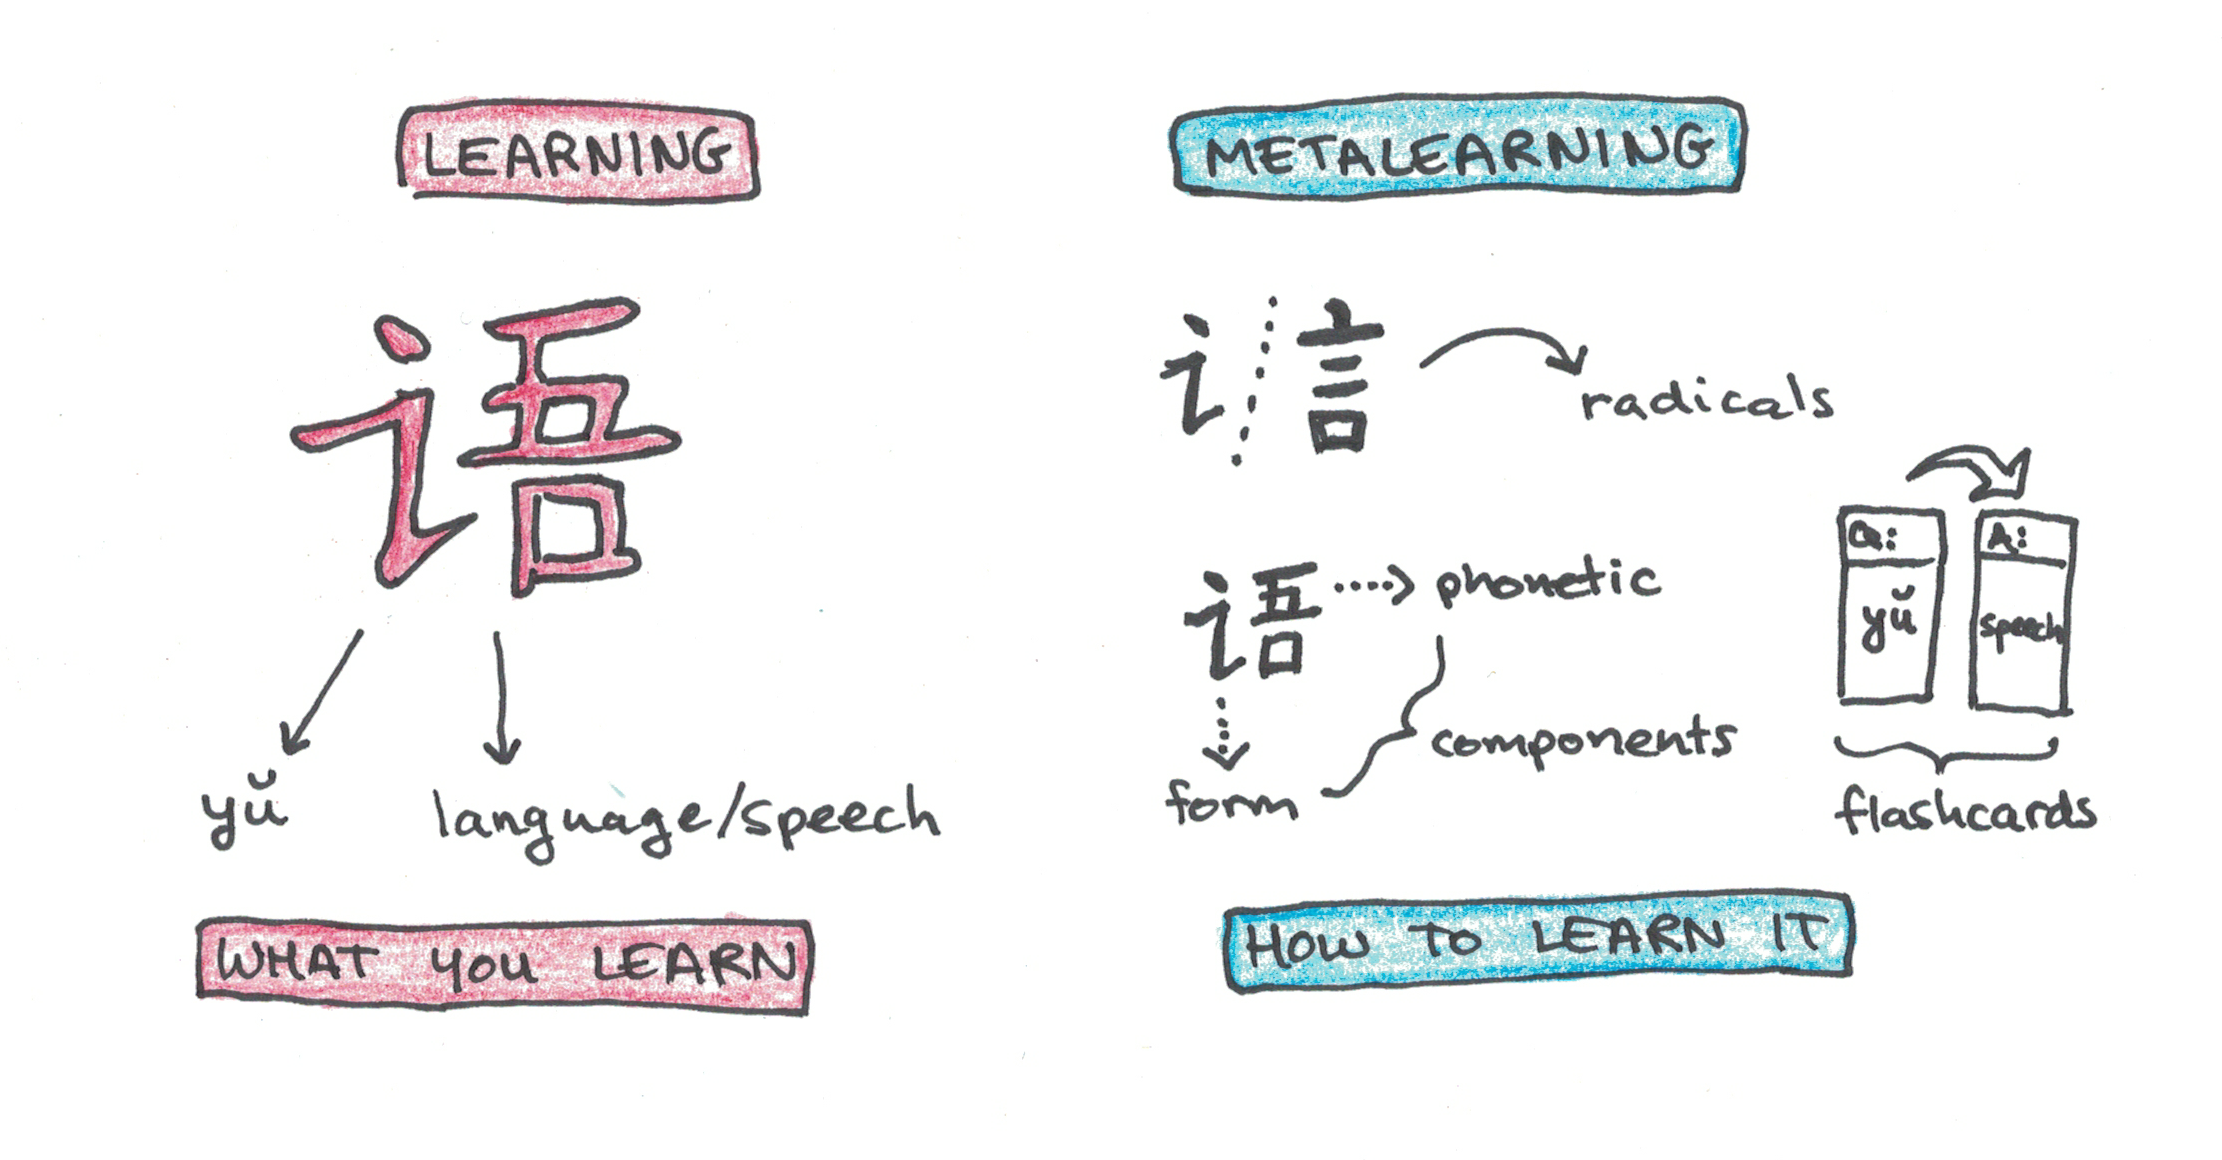 LEARNING
语
yŭ
language/speech
WHAT YOU LEARN
METALEARNING
讠言
radicals
语
phonetic
form
components
Q:
yŭ
A:
speech
flashcards
HOW TO LEARN IT